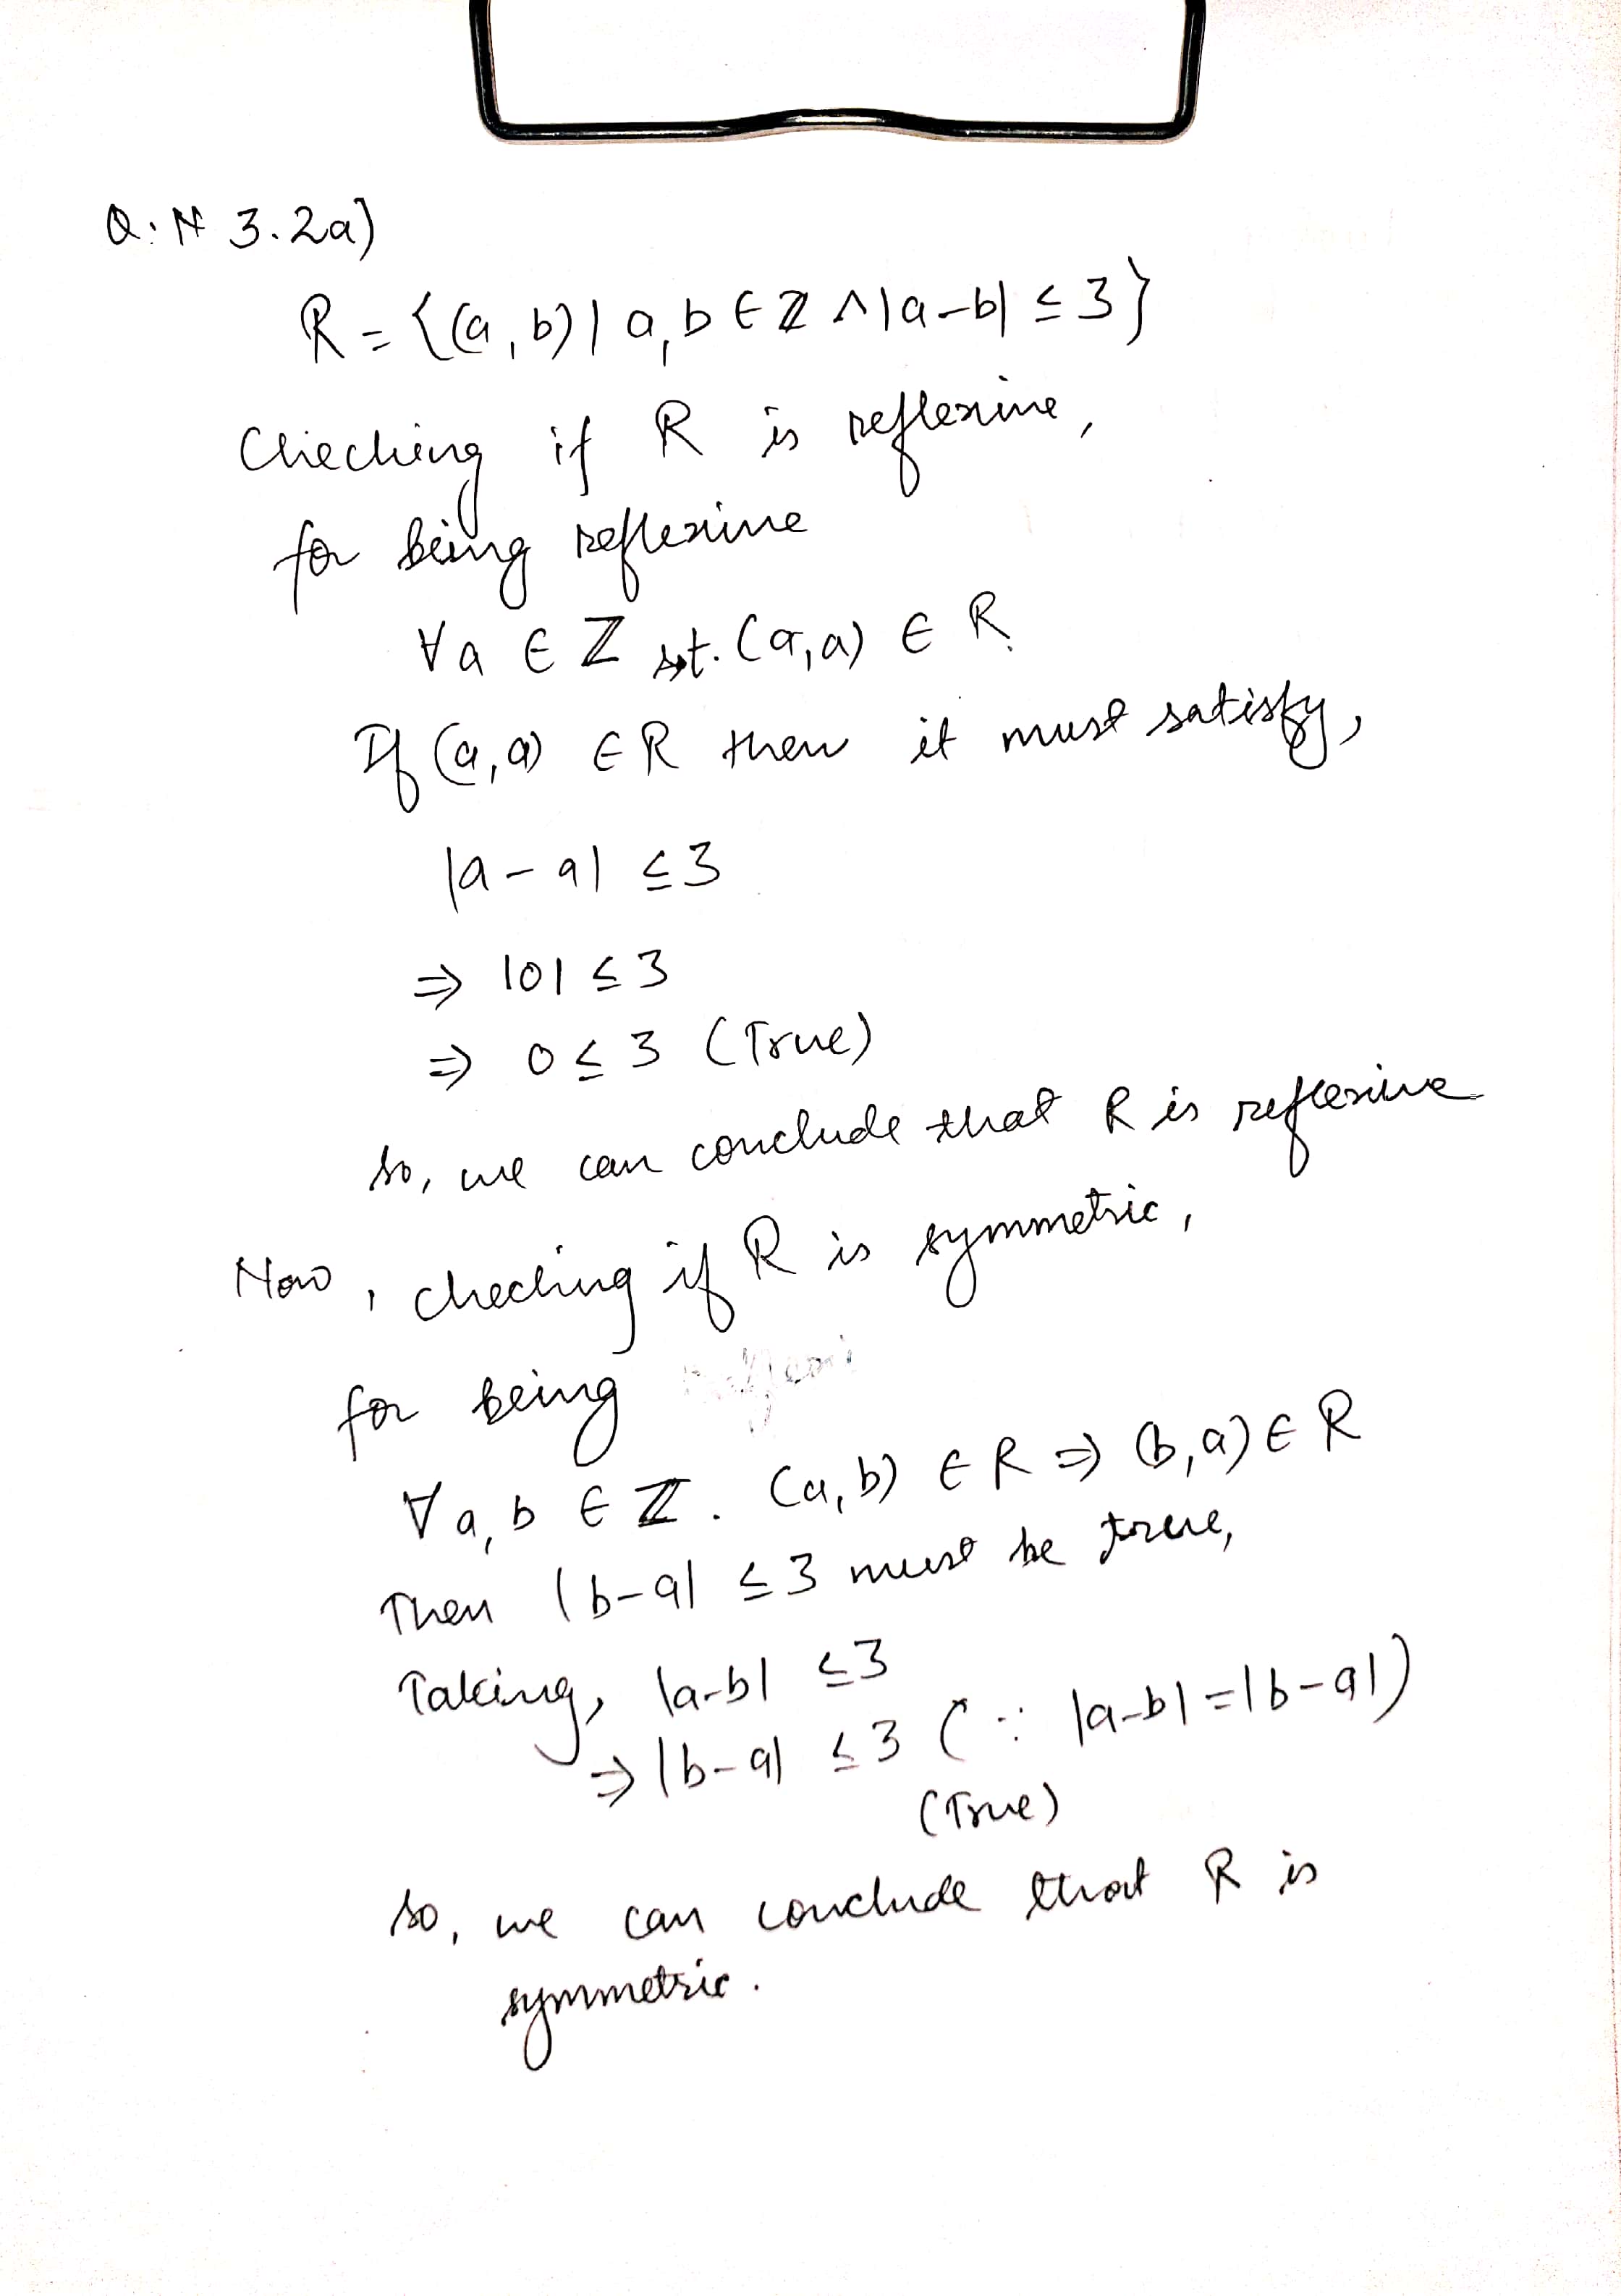 Q.N 3.2a)
R = {(a,b) | a,b ∈ ℤ ∧ |a-b| ≤ 3}
Checking if R is reflexive,
for being reflexive
∀a ∈ ℤ st. (a,a) ∈ R.
If (a,a) ∈ R then it must satisfy,
|a-a| ≤ 3
⇒ |0| ≤ 3
⇒ 0 ≤ 3 (True)
so, we can conclude that R is reflexive
Now, checking if R is symmetric,
for being
∀a,b ∈ ℤ. (a,b) ∈ R ⇒ (b,a) ∈ R
Then |b-a| ≤ 3 must be true,
Taking, |a-b| ≤ 3
⇒ |b-a| ≤ 3 (∵ |a-b| = |b-a|)
(True)
so, we can conclude that R is
symmetric.